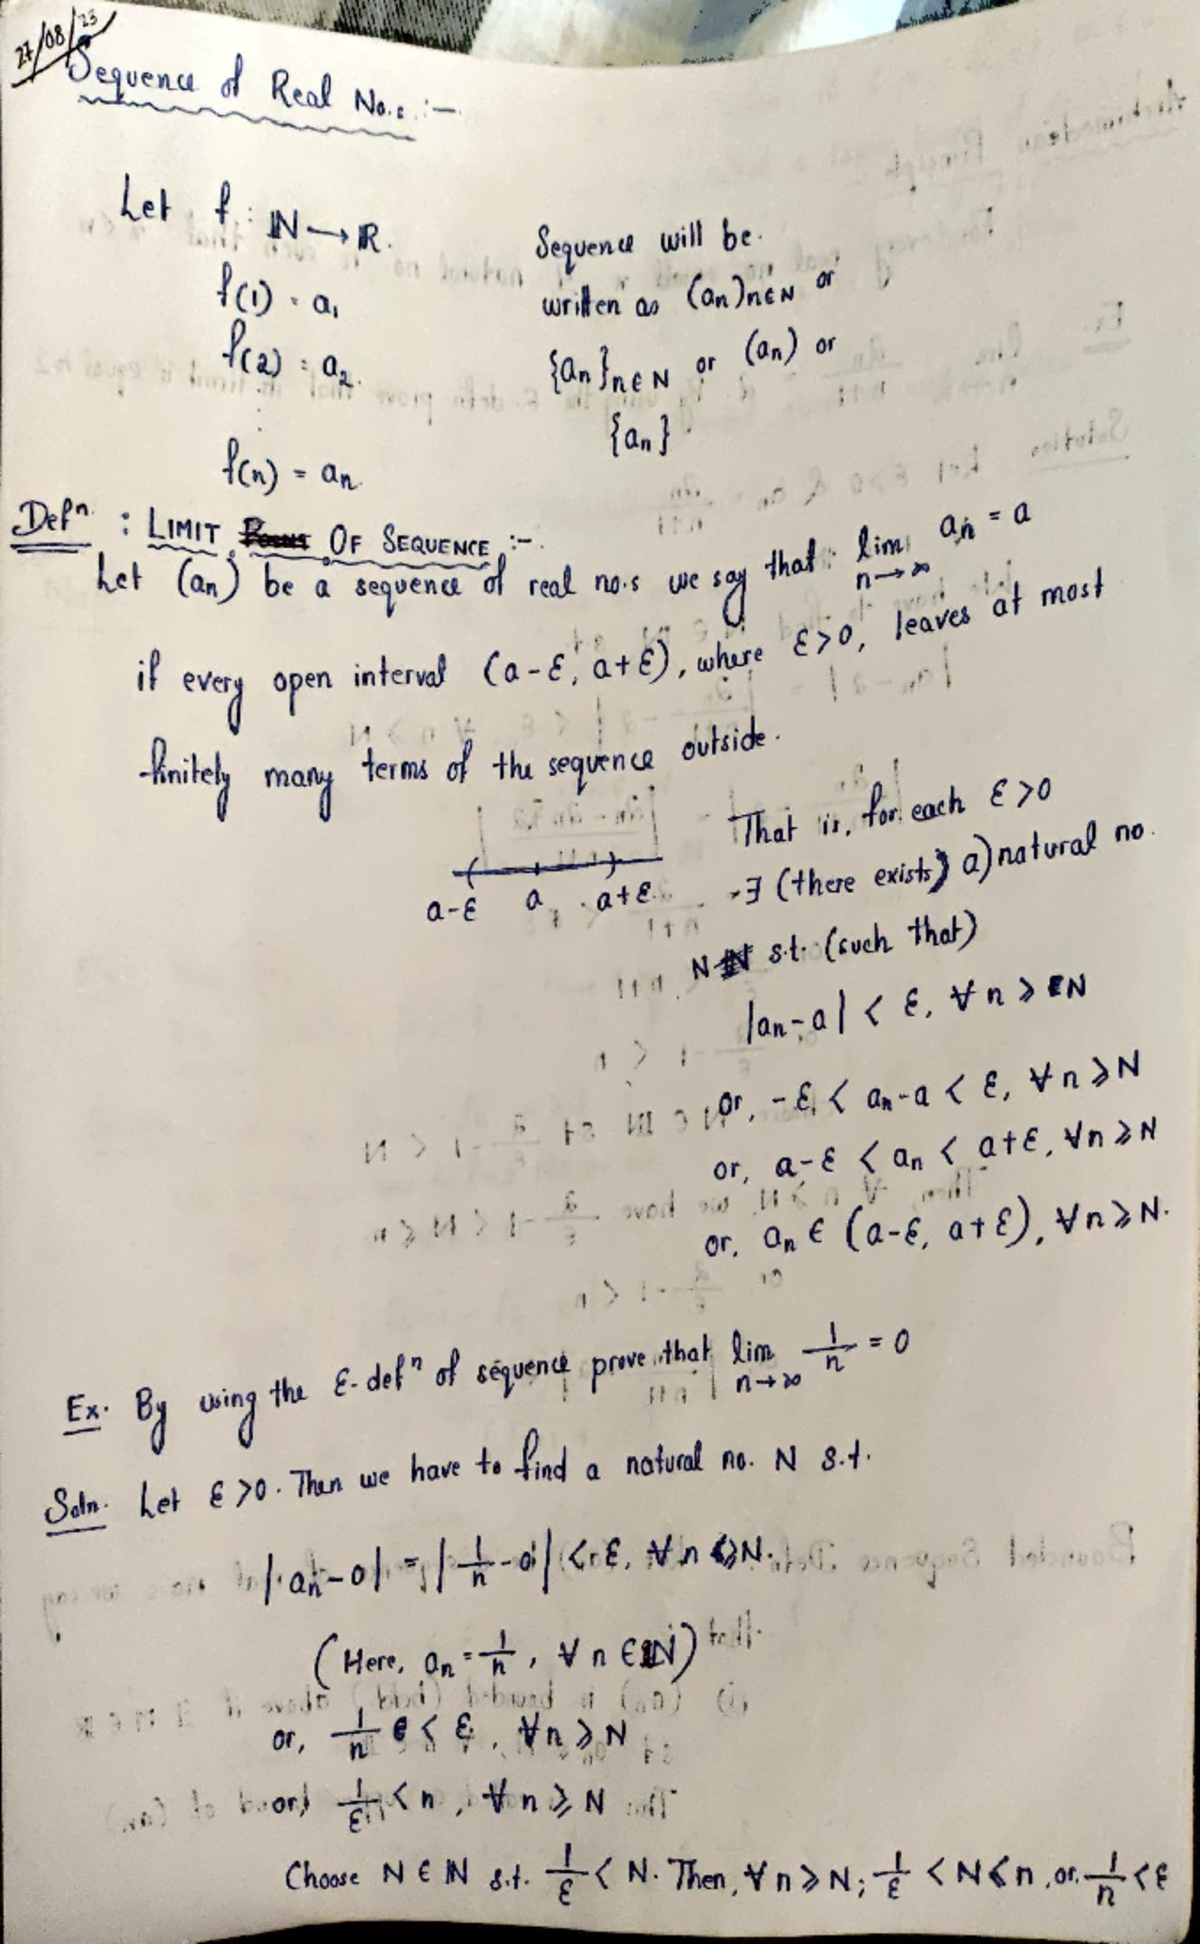 27/08/23
Sequence of Real No.s :-
Let f: ℕ → ℝ.
f(1) = a₁
f(2) = a₂.
⋮
f(n) = aₙ
Sequence will be
written as (aₙ)n∈N or
{aₙ}n∈N or (aₙ) or
{aₙ}
Defⁿ : LIMIT OF SEQUENCE :-
Let (aₙ) be a sequence of real no.s we say that lim n→∞ aₙ = a
if every open interval (a-ε, a+ε), where ε>0, leaves at most
finitely many terms of the sequence outside.
a-ε a a+ε
That is, for each ε>0
∃ (there exists) a) natural no.
N s.t. (such that)
|aₙ-a| < ε, ∀ n ≥ N
or, -ε < aₙ-a < ε, ∀n ≥ N
or, a-ε < aₙ < a+ε, ∀n ≥ N
or, aₙ ∈ (a-ε, a+ε), ∀n ≥ N.
Ex. By using the ε-defⁿ of sequence prove that lim n→∞ 1/n = 0
Soln. Let ε>0. Then we have to find a natural no. N s.t.
|aₙ-0| = |1/n - 0| < ε, ∀n ≥ N.
(Here, aₙ = 1/n, ∀ n ∈ ℕ)
or, 1/n < ε, ∀n ≥ N
or, 1/ε < n, ∀ n ≥ N
Choose N ∈ ℕ s.t. 1/ε < N. Then, ∀n ≥ N; 1/ε < N ≤ n, or, 1/n < ε